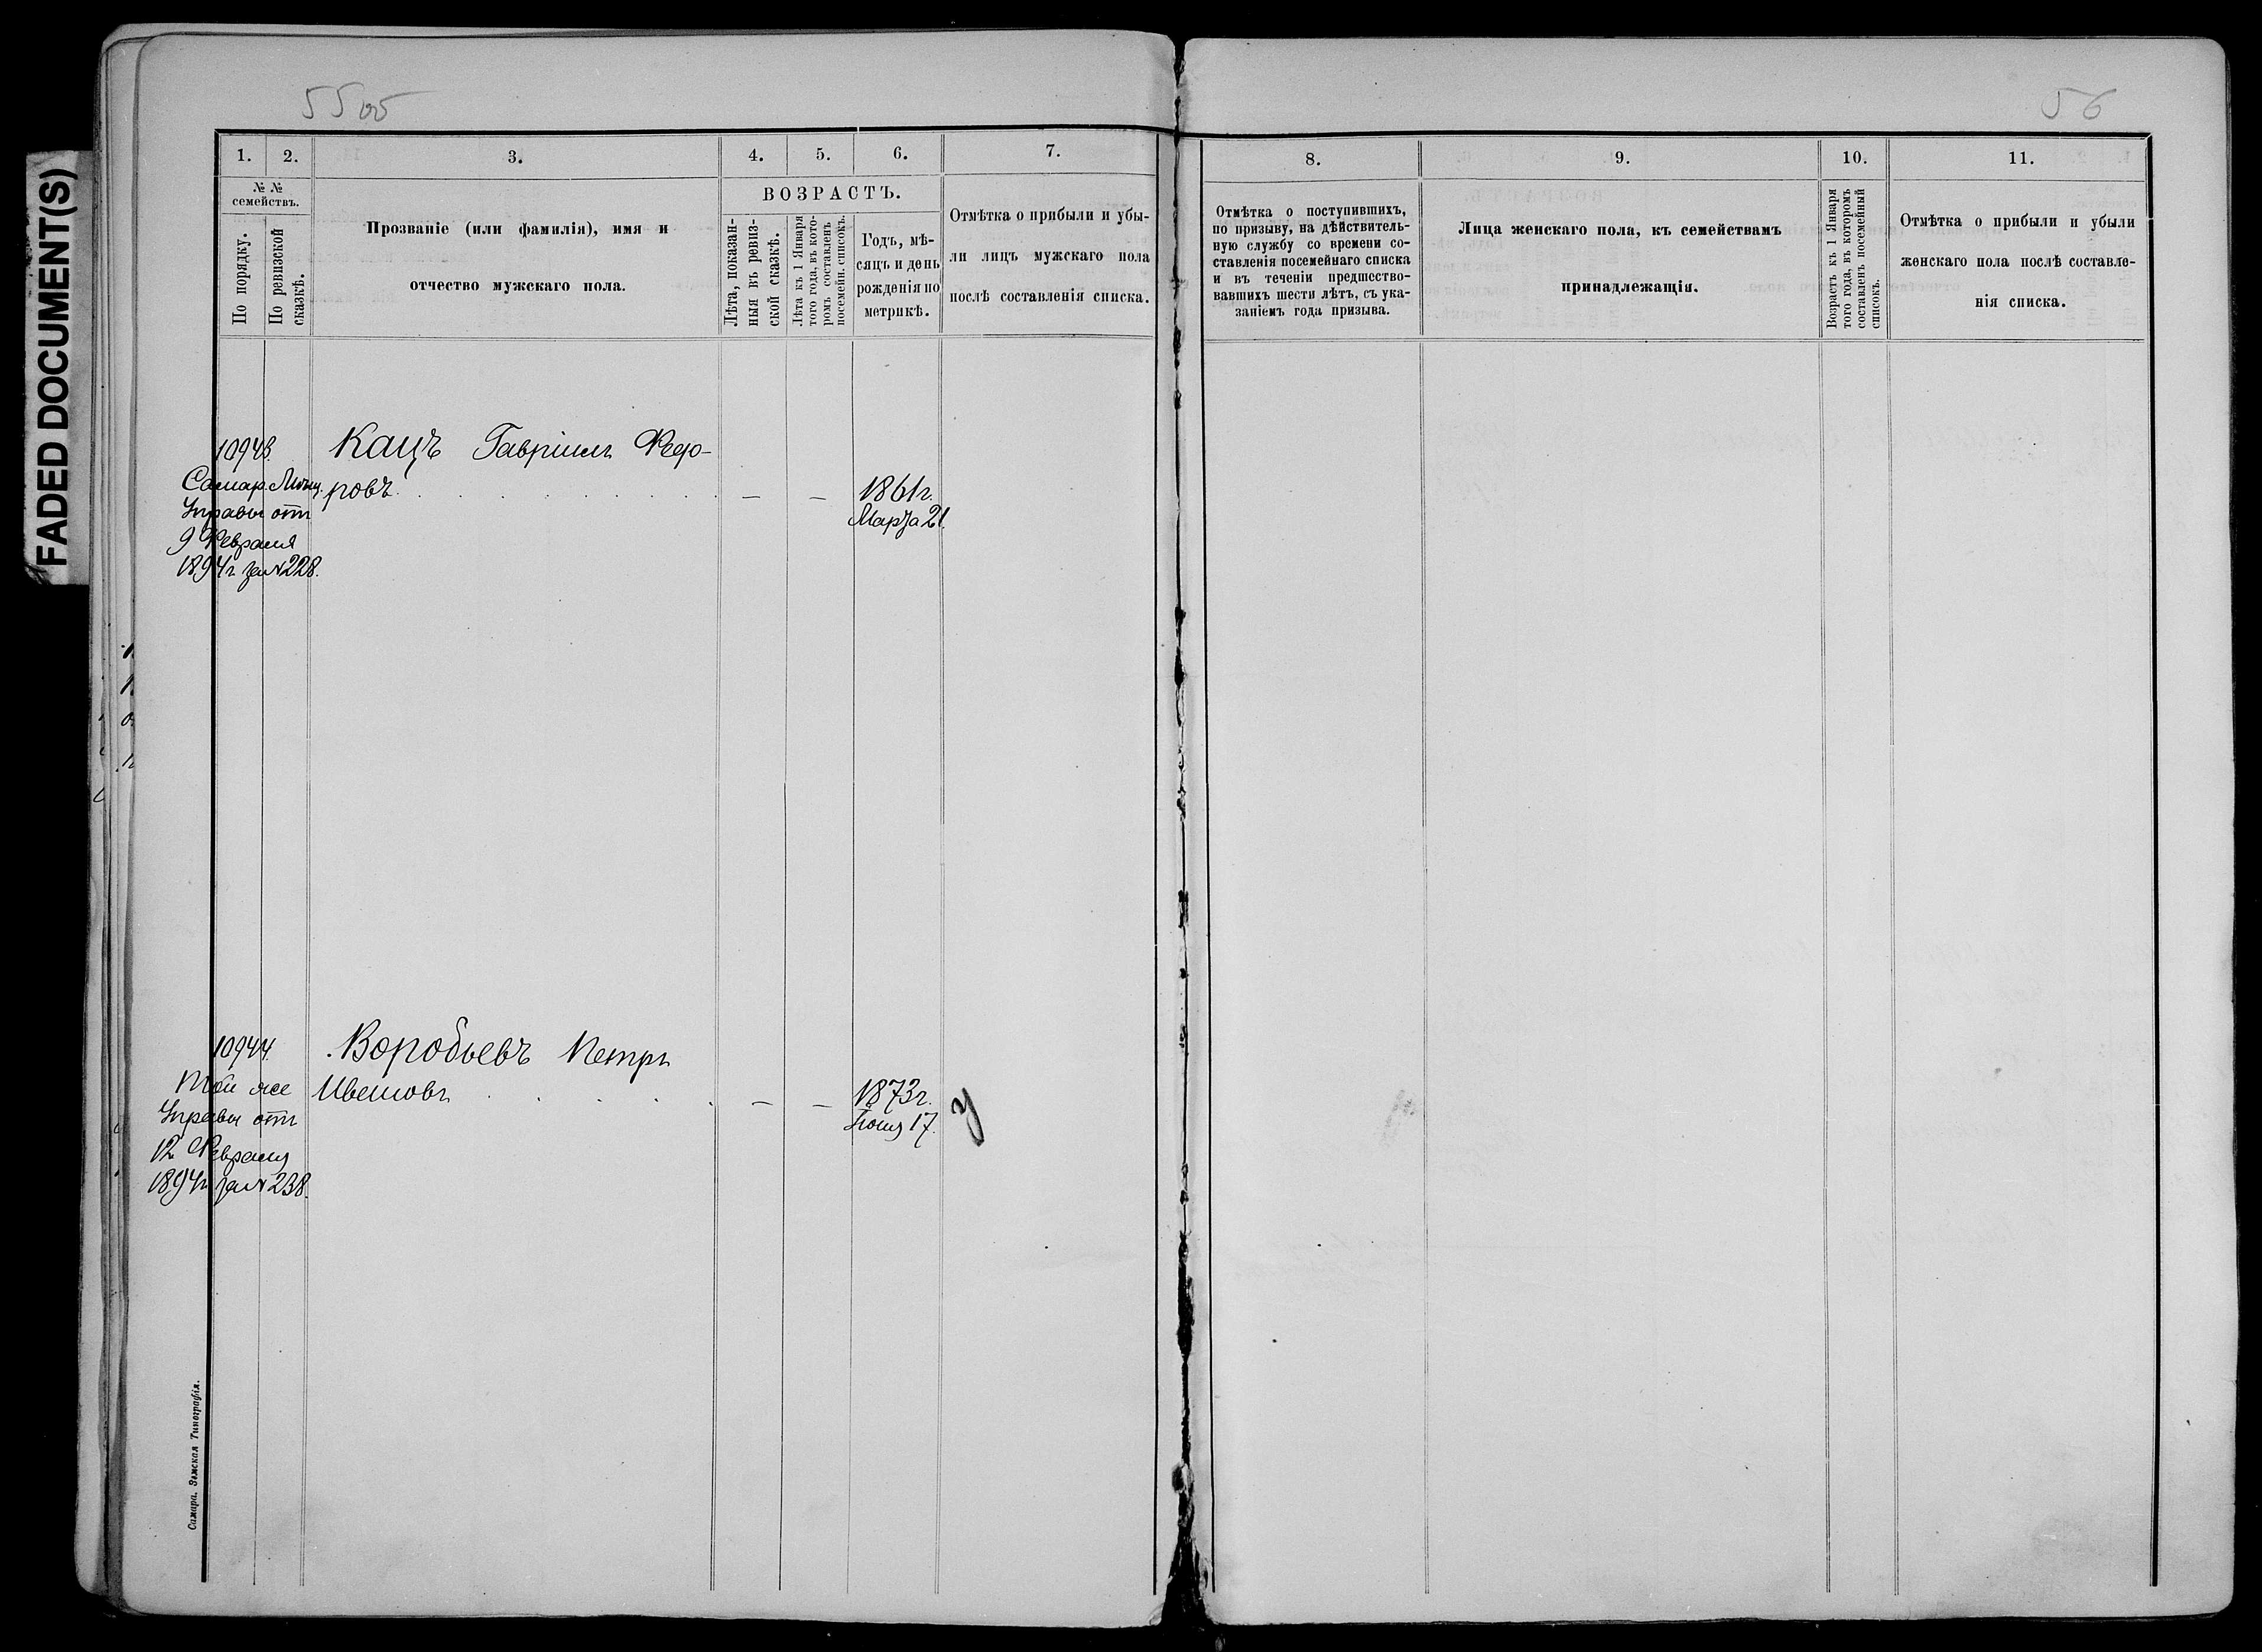 FADED DOCUMENT(S)
55 об
56
1.
2.
3.
4.
5.
6.
7.
8.
9.
10.
11.
№ №
семействъ.
По порядку.
По ревизской
сказкѣ.
Прозваніе (или фамилія), имя и
отчество мужскаго пола.
ВОЗРАСТЪ.
Лѣта, показан-
ныя въ ревиз-
ской сказкѣ.
Лѣта къ 1 Января
того года, въ кото-
ромъ составленъ
посемейн. списокъ.
Годъ, мѣ-
сяцъ и день
рожденія по
метрикѣ.
Отмѣтка о прибыли и убы-
ли лицъ мужскаго пола
послѣ составленія списка.
Отмѣтка о поступившихъ,
по призыву, на дѣйствитель-
ную службу со времени со-
ставленія посемейнаго списка
и въ теченіи предшество-
вавшихъ шести лѣтъ, съ ука-
заніемъ года призыва.
Лица женскаго пола, къ семействамъ
принадлежащія.
Возрастъ къ 1 Января
того года, въ которомъ
составленъ посемейный
списокъ.
Отмѣтка о прибыли и убыли
женскаго пола послѣ составле-
нія списка.
10943.
Кацъ Гавріилъ Ѳедо-
Самар. Мѣщ.
ровъ. . . . . . . . . – – 1861 г.
Управы отъ
Марта 21.
9 Февраля
1894 г. за № 228.
10944.
Воробьевъ Петръ
Той же
Ивановъ . . . . . – – 1873 г.
Управы отъ
Іюня 17.
У
12 Февраля
1894 г. за № 238.
Самара. Земская Типографія.